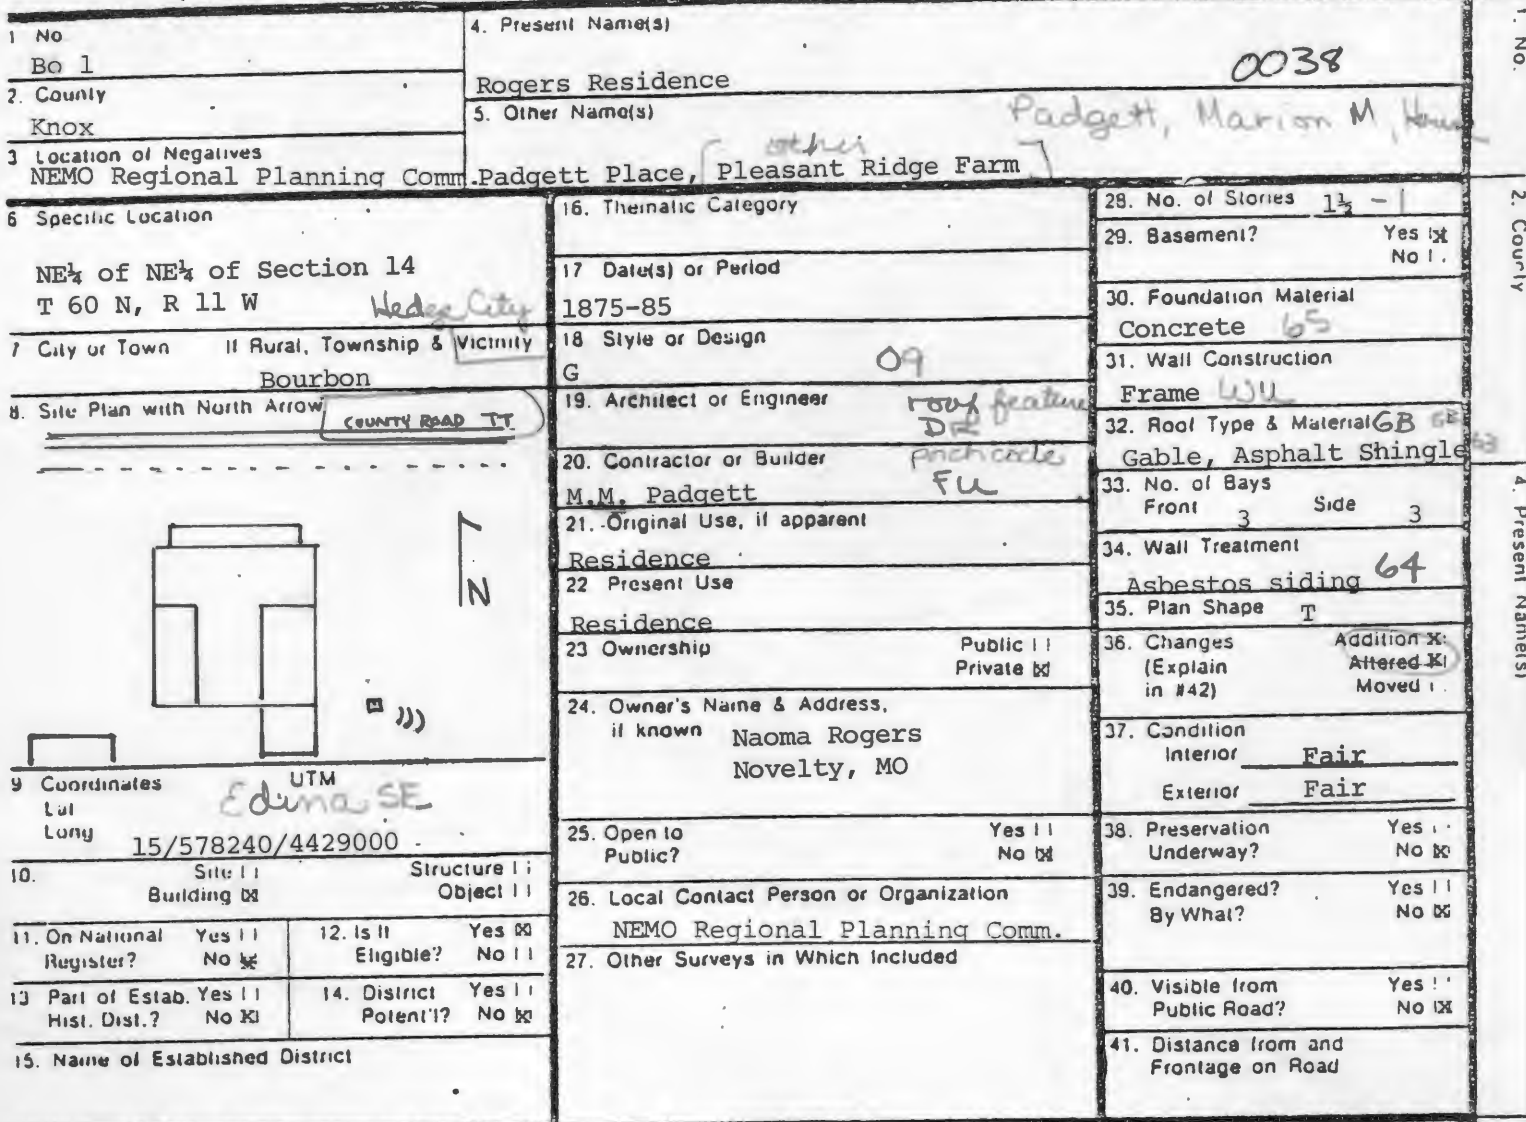 1 No.
Bo 1
2. County
Knox
3 Location of Negatives
NEMO Regional Planning Comm.
4. Present Name(s)
0038
Rogers Residence
5. Other Name(s)
Padgett, Marion M, House
other
Padgett Place, [Pleasant Ridge Farm]
6 Specific Location
NE¼ of NE¼ of Section 14
T 60 N, R 11 W
Hedge City
7 City or Town If Rural, Township & Vicinity
Bourbon
8. Site Plan with North Arrow
COUNTY ROAD TT
N
9 Coordinates UTM
Lat
Long
Edina SE
15/578240/4429000
10. Site Structure
Building [X] Object
11. On National Register? Yes No [X]
12. Is It Eligible? Yes [X] No
13 Part of Estab. Hist. Dist.? Yes No [X]
14. District Potent'l? Yes No [X]
15. Name of Established District
16. Thematic Category
17 Date(s) or Period
1875-85
18 Style or Design
G 09
19. Architect or Engineer
roof feature
DR
20. Contractor or Builder
porch code
FU
M.M. Padgett
21. Original Use, if apparent
Residence
22 Present Use
Residence
23 Ownership Public
Private [X]
24. Owner's Name & Address,
if known Naoma Rogers
Novelty, MO
25. Open to Yes
Public? No [X]
26. Local Contact Person or Organization
NEMO Regional Planning Comm.
27. Other Surveys in Which Included
28. No. of Stories 1½ - 1
29. Basement? Yes [X]
No
30. Foundation Material
Concrete 65
31. Wall Construction
Frame WU
32. Roof Type & Material GB
Gable, Asphalt Shingle 63
33. No. of Bays
Front 3 Side 3
34. Wall Treatment
Asbestos siding 64
35. Plan Shape T
36. Changes Addition X
(Explain Altered X
in #42) Moved
37. Condition
Interior Fair
Exterior Fair
38. Preservation Yes
Underway? No [X]
39. Endangered? Yes
By What? No [X]
40. Visible from Yes
Public Road? No [X]
41. Distance from and
Frontage on Road
1. No.
2. County
4. Present Name(s)